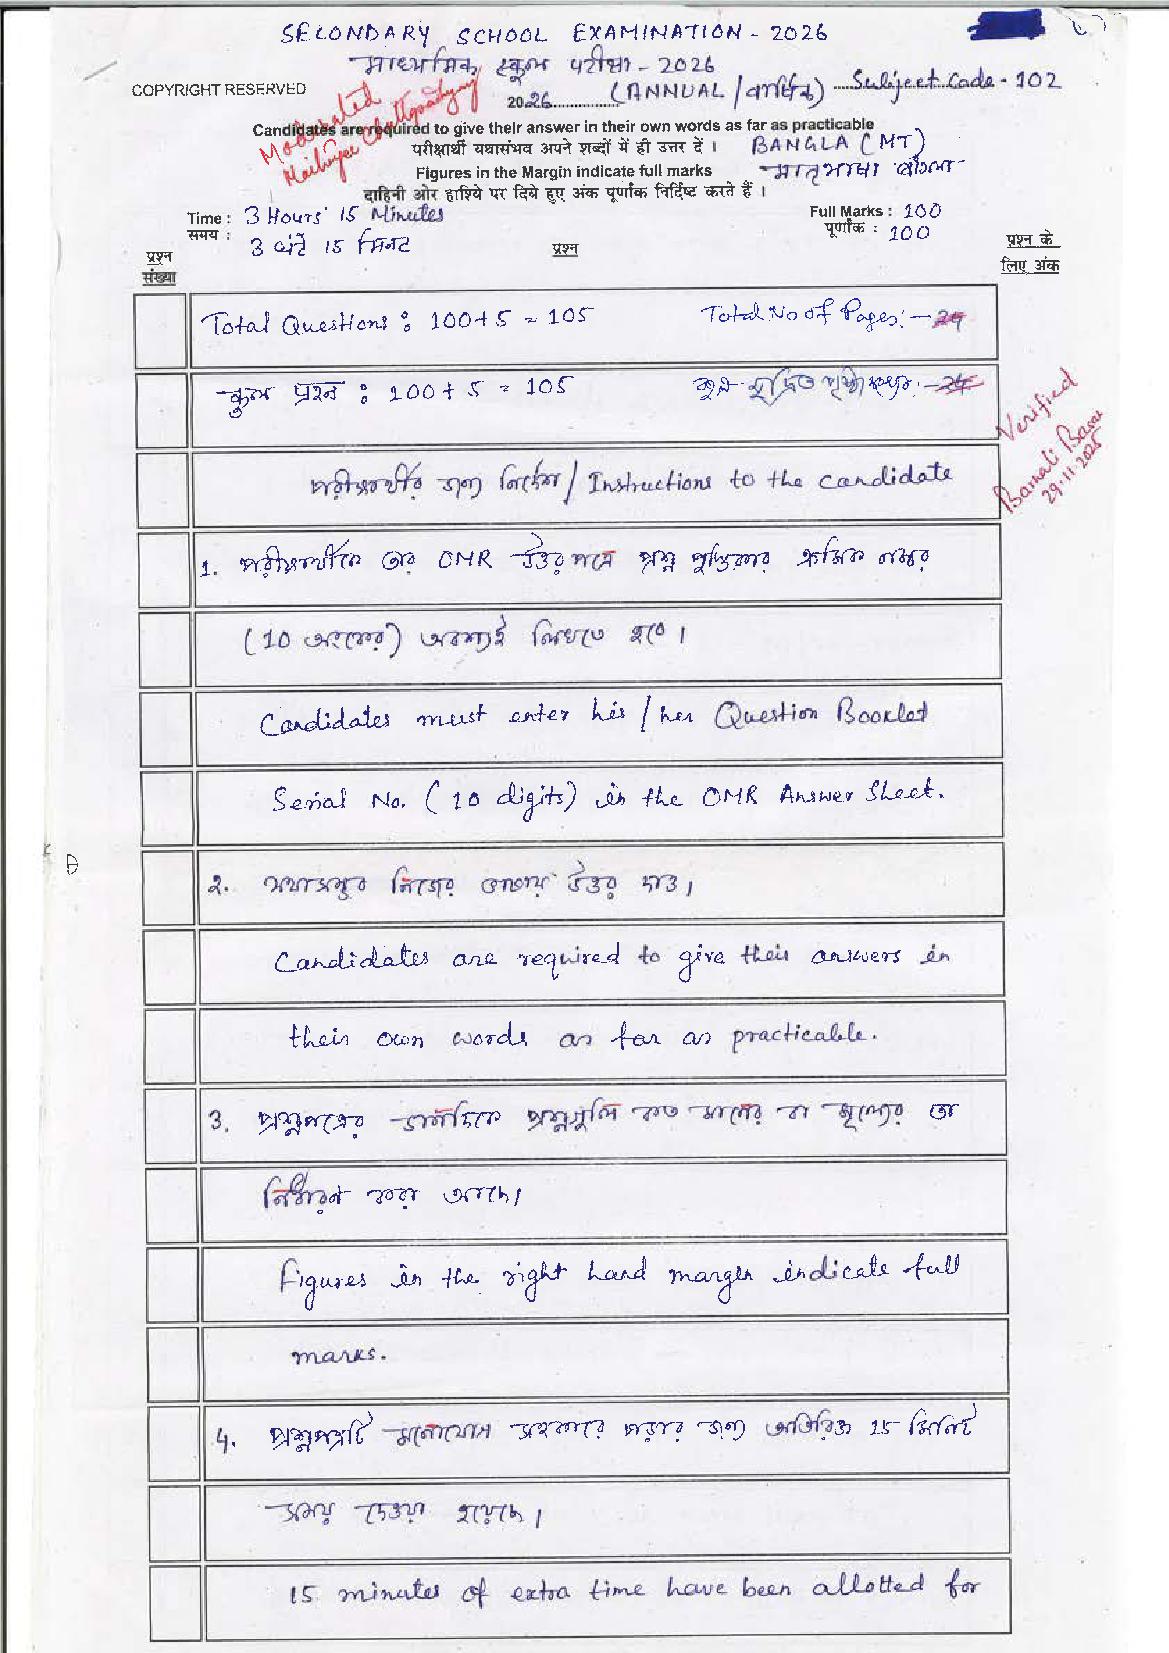 SECONDARY SCHOOL EXAMINATION - 2026
माध्यमिक स्कूल परीक्षा - 2026
COPYRIGHT RESERVED
2026 (ANNUAL / वार्षिक) Subject Code - 102
Moderated
Candidates are required to give their answer in their own words as far as practicable
परीक्षार्थी यथासंभव अपने शब्दों में ही उत्तर दें । BANGLA (MT)
Figures in the Margin indicate full marks मातृभाषा बांग्ला
दाहिनी ओर हाशिये पर दिये हुए अंक पूर्णांक निर्दिष्ट करते हैं ।
Time : 3 Hours 15 Minutes Full Marks : 100
समय : 3 घंटे 15 मिनट पूर्णांक : 100
प्रश्न संख्या प्रश्न प्रश्न के लिए अंक
Total Questions : 100+5 = 105 Total No of Pages :- 24
कुल प्रश्न : 100+5 = 105
Verified
Barnali Basu
29.11.2025
পরীক্ষার্থীর জন্য নির্দেশ / Instructions to the candidate
1. পরীক্ষার্থীকে তার OMR উত্তর পত্রে প্রশ্ন পুস্তিকার ক্রমিক নম্বর
(10 অংকের) অবশ্যই লিখতে হবে ।
Candidates must enter his / her Question Booklet
Serial No. (10 digits) in the OMR Answer Sheet.
২. যথাসম্ভব নিজের ভাষায় উত্তর দাও ।
Candidates are required to give their answers in
their own words as far as practicable.
3. প্রশ্নপত্রের ডানদিকে প্রশ্নগুলি কত মানের বা মূল্যের তা
নির্ধারণ করা আছে।
Figures in the right hand margin indicate full
marks.
4. প্রশ্নপত্রটি মনোযোগ সহকারে পড়ার জন্য অতিরিক্ত 15 মিনিট
সময় দেওয়া হয়েছে ।
15 minutes of extra time have been allotted for